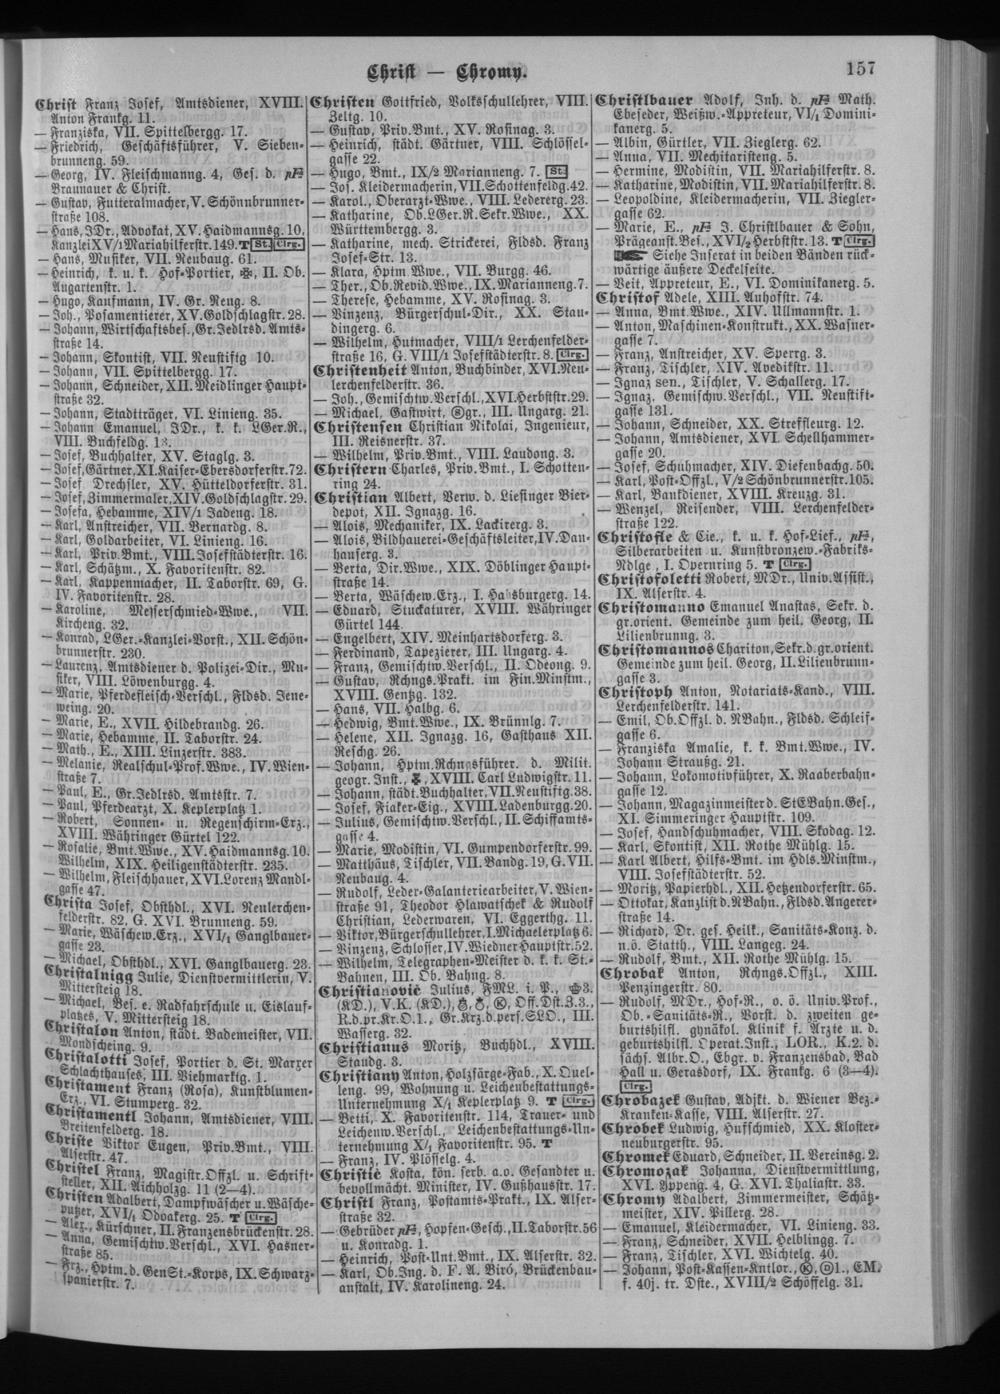 Christ — Chromy.
157
Christ Franz Josef, Amtsdiener, XVIII.
Anton Frankg. 11.
— Franziska, VII. Spittelbergg. 17.
— Friedrich, Geschäftsführer, V. Sieben-
brunneng. 59.
— Georg, IV. Fleischmanng. 4, Ges. d.
Braunauer & Christ.
— Gustav, Futteralmacher, V. Schönbrunner-
straße 108.
— Hans, JDr., Advokat, XV. Haidmannsg. 10,
Kanzlei XV/1 Mariahilferstr. 149. T St. Clrg.
— Hans, Musiker, VII. Neubaug. 61.
— Heinrich, k. u. k. Hof-Portier, ✠, II. Ob.
Augartenstr. 1.
— Hugo, Kaufmann, IV. Gr. Neug. 8.
— Joh., Posamentierer, XV. Goldschlagstr. 28.
— Johann, Wirtschaftsbes., Gr. Jedlrsd. Amts-
straße 14.
— Johann, Skontist, VII. Neustiftg 10.
— Johann, VII. Spittelbergg. 17.
— Johann, Schneider, XII. Meidlinger Haupt-
straße 32.
— Johann, Stadtträger, VI. Linieng. 35.
— Johann Emanuel, JDr., k. k. LGer.R.,
VIII. Buchfeldg. 13.
— Josef, Buchhalter, XV. Staglg. 3.
— Josef, Gärtner, XI. Kaiser-Ebersdorferstr. 72.
— Josef Drechsler, XV. Hütteldorferstr. 31.
— Josef, Zimmermaler, XIV. Goldschlagstr. 29.
— Josefa, Hebamme, XIV/1 Jadeng. 18.
— Karl, Anstreicher, VII. Bernardg. 8.
— Karl, Goldarbeiter, VI. Linieng. 16.
— Karl, Priv. Bmt., VIII. Josefstädterstr. 16.
— Karl, Schätzm., X. Favoritenstr. 82.
— Karl, Kappenmacher, II. Taborstr. 69, G.
IV. Favoritenstr. 28.
— Karoline, Messerschmied-Wwe., VII.
Kircheng. 32.
— Konrad, LGer.-Kanzlei-Vorst., XII. Schön-
brunnerstr. 230.
— Laurenz, Amtsdiener d. Polizei-Dir., Mu-
siker, VIII. Löwenburgg. 4.
— Marie, Pferdefleisch-Verschl., Fldsd. Jene-
weing. 20.
— Marie, E., XVII. Hildebrandg. 26.
— Marie, Hebamme, II. Taborstr. 24.
— Math., E., XIII. Linzerstr. 383.
— Melanie, Realschul-Prof. Wwe., IV. Wien-
straße 7.
— Paul, E., Gr. Jedlrsd. Amtsstr. 7.
— Paul, Pferdearzt, X. Keplerplatz 1.
— Robert, Sonnen- u. Regenschirm-Erz.,
XVIII. Währinger Gürtel 122.
— Rosalie, Bmt. Wwe., XV. Haidmannsg. 10.
Wilhelm, XIX. Heiligenstädterstr. 235.
— Wilhelm, Fleischhauer, XVI. Lorenz Mandl-
gasse 47.
Christa Josef, Obsthdl., XVI. Neulerchen-
felderstr. 82, G. XVI. Brunneng. 59.
— Marie, Wäschew. Erz., XVI/1 Ganglbauer-
gasse 23.
— Michael, Obsthdl., XVI. Ganglbauerg. 23.
Christalnigg Julie, Dienstvermittlerin, V.
Mittersteig 18.
— Michael, Bes. e. Radfahrschule u. Eislauf-
platzes, V. Mittersteig 18.
Christalon Anton, städt. Bademeister, VII.
Mondscheing. 9.
Christalotti Josef, Portier d. St. Marxer
Schlachthauses, III. Viehmarktg. 1.
Christament Franz (Rosa), Kunstblumen-
Erz., VI. Stumperg. 32.
Christamentl Johann, Amtsdiener, VIII.
Breitenfelderg. 18.
Christe Viktor Eugen, Priv. Bmt., VIII.
Alserstr. 47.
Christel Franz, Magistr. Offzl. u. Schrift-
steller, XII. Aichholzg. 11 (2—4).
Christen Adalbert, Dampfwäscher u. Wäsche-
putzer, XVI/1 Odoakerg. 25. T Clrg.
— Alex., Kürschner, II. Franzensbrückenstr. 28.
— Anna, Gemischtw. Verschl., XVI. Hasner-
straße 85.
— Frz., Hptm. d. GenSt.-Korps, IX. Schwarz-
spanierstr. 7.
Christen Gottfried, Volksschullehrer, VIII.
Zeltg. 10.
— Gustav, Priv. Bmt., XV. Rosinag. 3.
— Heinrich, städt. Gärtner, VIII. Schlössel-
gasse 22.
— Hugo, Bmt., IX/2 Marianneng. 7. St.
— Jos. Kleidermacherin, VII. Schottenfeldg. 42.
— Karol., Oberarzt-Wwe., VIII. Ledererg. 23.
— Katharine, Ob.L.Ger.R.Sekr.Wwe., XX.
Württembergg. 3.
— Katharine, mech. Strickerei, Fldsd. Franz
Josef-Str. 13.
— Klara, Hptm. Wwe., VII. Burgg. 46.
— Ther., Ob. Revid. Wwe., IX. Marianneng. 7.
— Therese, Hebamme, XV. Rosinag. 3.
— Vinzenz, Bürgerschul-Dir., XX. Stau-
dingerg. 6.
— Wilhelm, Hutmacher, VIII/1 Lerchenfelder-
straße 16, G. VIII/1 Josefstädterstr. 8. Clrg.
Christenheit Anton, Buchbinder, XVI. Neu-
lerchenfelderstr. 36.
— Joh., Gemischtw. Verschl., XVI. Herbststr. 29.
— Michael, Gastwirt, gr., III. Ungarg. 21.
Christensen Christian Nikolai, Ingenieur,
III. Reisnerstr. 37.
— Wilhelm, Priv. Bmt., VIII. Laudong. 3.
Christern Charles, Priv. Bmt., I. Schotten-
ring 24.
Christian Albert, Verw. d. Liesinger Bier-
depot, XII. Ignazg. 16.
— Alois, Mechaniker, IX. Lackirerg. 3.
— Alois, Bildhauerei-Geschäftsleiter, IV. Dan-
hauserg. 3.
— Berta, Dir. Wwe., XIX. Döblinger Haupt-
straße 14.
— Berta, Wäschew. Erz., I. Habsburgerg. 14.
— Eduard, Stuckaturer, XVIII. Währinger
Gürtel 144.
— Engelbert, XIV. Meinhartsdorferg. 3.
— Ferdinand, Tapezierer, III. Ungarg. 4.
— Franz, Gemischtw. Verschl., II. Odeong. 9.
— Gustav, Rchngs. Prakt. im Fin. Minstm.,
XVIII. Gentzg. 132.
— Hans, VII. Halbg. 6.
— Hedwig, Bmt. Wwe., IX. Brünnlg. 7.
— Helene, XII. Ignazg. 16, Gasthaus XII.
Reschg. 26.
— Johann, Hptm. Rchngsführer. d. Milit.
geogr. Inst., XVIII. Carl Ludwigstr. 11.
— Johann, städt. Buchhalter, VII. Neustiftg. 38.
— Josef, Fiaker-Eig., XVIII. Ladenburgg. 20.
— Julius, Gemischtw. Verschl., II. Schiffamts-
gasse 4.
— Marie, Modistin, VI. Gumpendorferstr. 99.
— Matthäus, Tischler, VII. Bandg. 19, G. VII.
Neubaug. 4.
— Rudolf, Leder-Galanteriearbeiter, V. Wien-
straße 91, Theodor Hlawatschek & Rudolf
Christian, Lederwaren, VI. Eggerthg. 11.
— Viktor, Bürgerschullehrer, I. Michaelerplatz 6.
— Vinzenz, Schlosser, IV. Wiedner Hauptstr. 52.
— Wilhelm, Telegraphen-Meister d. k. k. St.-
Bahnen, III. Ob. Bahng. 8.
Christianović Julius, FML. i. P., 3.
(KD.), V.K. (KD.), Off. Dst. Z. 3.,
R.d.pr.Kr.O. 1., Gr. Krz. d. pers. SLO., III.
Wasserg. 32.
Christianus Moritz, Buchhdl., XVIII.
Standg. 3.
Christiany Anton, Holzsärge-Fab., X. Quel-
leng. 99, Wohnung u. Leichenbestattungs-
Unternehmung X/1 Keplerplatz 9. T Clrg.
— Betti, X. Favoritenstr. 114, Trauer- und
Leichenw. Verschl., Leichenbestattungs-Un-
ternehmung X/1 Favoritenstr. 95. T
— Franz, IV. Plösselg. 4.
Christić Kosta, kön. serb. a.o. Gesandter u.
bevollmächt. Minister, IV. Gußhausstr. 17.
Christl Franz, Postamts-Prakt., IX. Alser-
straße 32.
— Gebrüder, Hopfen-Gesch., II. Taborstr. 56
u. Konradg. 1.
— Heinrich, Post-Unt. Bmt., IX. Alserstr. 32.
— Karl, Ob. Ing. d. F. A. Biró, Brückenbau-
anstalt, IV. Karolineng. 24.
Christlbauer Adolf, Inh. d. Math.
Ebeseder, Weißw.-Appreteur, VI/1 Domini-
kanerg. 5.
— Albin, Gürtler, VII. Zieglerg. 62.
— Anna, VII. Mechitaristeng. 5.
— Hermine, Modistin, VII. Mariahilferstr. 8.
— Katharine, Modistin, VII. Mariahilferstr. 8.
— Leopoldine, Kleidermacherin, VII. Ziegler-
gasse 62.
— Marie, E., J. Christlbauer & Sohn,
Prägeanst. Bes., XVI/2 Herbststr. 13. T Clrg.
Siehe Inserat in beiden Bänden rück-
wärtige äußere Deckelseite.
— Veit, Appreteur, E., VI. Dominikanerg. 5.
Christof Adele, XIII. Auhofstr. 74.
— Anna, Bmt. Wwe., XIV. Ullmannstr. 1.
— Anton, Maschinen-Konstrukt., XX. Wasner-
gasse 7.
— Franz, Anstreicher, XV. Sperrg. 3.
— Franz, Tischler, XIV. Avedikstr. 11.
— Ignaz sen., Tischler, V. Schallerg. 17.
— Ignaz. Gemischw. Verschl., VII. Neustift-
gasse 131.
— Johann, Schneider, XX. Streffleurg. 12.
— Johann, Amtsdiener, XVI. Schellhammer-
gasse 20.
— Josef, Schuhmacher, XIV. Diefenbachg. 50.
— Karl, Post-Offzl., V/2 Schönbrunnerstr. 105.
— Karl, Bankdiener, XVIII. Kreuzg. 31.
— Wenzel, Reisender, VIII. Lerchenfelder-
straße 122.
Christofle & Cie., k. u. k. Hof-Lief.,
Silberarbeiten u. Kunstbronzew.-Fabriks-
Ndlge, I. Opernring 5. T Clrg.
Christofoletti Robert, MDr., Univ. Assist.,
IX. Alserstr. 4.
Christomanno Emanuel Anastas, Sekr. d.
gr.orient. Gemeinde zum heil. Georg, II.
Lilienbrunng. 3.
Christomannos Chariton, Sekr. d. gr. orient.
Gemeinde zum heil. Georg, II. Lilienbrunn-
gasse 3.
Christoph Anton, Notariats-Kand., VIII.
Lerchenfelderstr. 141.
— Emil, Ob. Offzl. d. NBahn., Fldsd. Schleif-
gasse 6.
— Franziska Amalie, k. k. Bmt. Wwe., IV.
Johann Straußg. 21.
— Johann, Lokomotivführer, X. Raaberbahn-
gasse 12.
— Johann, Magazinmeister d. StEBahn. Ges.,
XI. Simmeringer Hauptstr. 109.
— Josef, Handschuhmacher, VIII. Skodag. 12.
— Karl, Skontist, XII. Rothe Mühlg. 15.
— Karl Albert, Hilfs-Bmt. im Hdls. Minstm.,
VIII. Josefstädterstr. 52.
— Moritz, Papierhdl., XII. Hetzendorferstr. 65.
— Ottokar, Kanzlist d. NBahn., Fldsd. Angerer-
straße 14.
— Richard, Dr. ges. Heilk., Sanitäts-Konz. d.
n.ö. Statth., VIII. Langeg. 24.
— Rudolf, Bmt., XII. Rothe Mühlg. 15.
Chrobak Anton, Rchngs. Offzl., XIII.
Penzingerstr. 80.
— Rudolf, MDr., Hof-R., o. ö. Univ. Prof.,
Ob.-Sanitäts-R., Vorst. d. zweiten ge-
burtshilfl. gynäkol. Klinik f. Ärzte u. d.
geburtshilfl. Operat. Inst., LOR., K.2. d.
sächs. Albr.O., Ebgr. v. Franzensbad, Bad
Hall u. Gerasdorf, IX. Frankg. 6 (3—4).
Clrg.
Chrobazek Gustav, Adjkt. d. Wiener Bez.-
Kranken-Kasse, VIII. Alserstr. 27.
Chrobek Ludwig, Hufschmied, XX. Kloster-
neuburgerstr. 95.
Chromek Eduard, Schneider, II. Vereinsg. 2.
Chromozak Johanna, Dienstvermittlung,
XVI. Yppeng. 4, G. XVI. Thaliastr. 33.
Chromy Adalbert, Zimmermeister, Schätz-
meister, XIV. Pillerg. 28.
— Emanuel, Kleidermacher, VI. Linieng. 33.
— Franz, Schneider, XVII. Helblingg. 7.
— Franz, Tischler, XVI. Wichtelg. 40.
— Johann, Post-Kassen-Kntlor., 1., EM.
f. 40j. tr. Dste., XVIII/2 Schöffelg. 31.